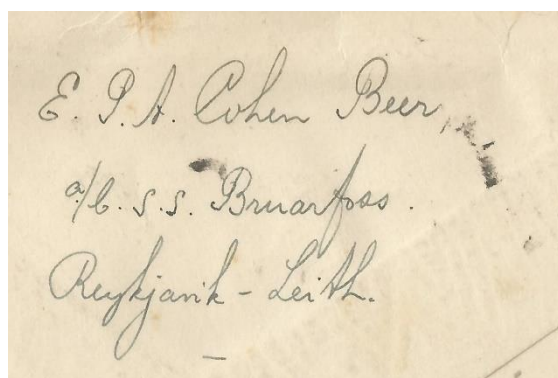 E. P. A. Cohen Beer,
a/b. s.s. Bruarfoss.
Reykjavik - Leith.